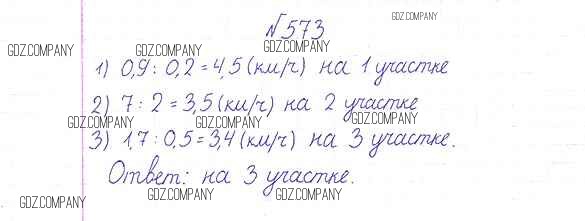 №573
GDZ.COMPANY
GDZ.COMPANY GDZ.COMPANY GDZ.COMPANY
1) 0,9 : 0,2 = 4,5 (км/ч) на 1 участке
2) 7 : 2 = 3,5 (км/ч) на 2 участке
GDZ.COMPANY GDZ.COMPANY GDZ.COMPANY
3) 1,7 : 0,5 = 3,4 (км/ч) на 3 участке.
Ответ: на 3 участке.
GDZ.COMPANY GDZ.COMPANY GDZ.COMPANY